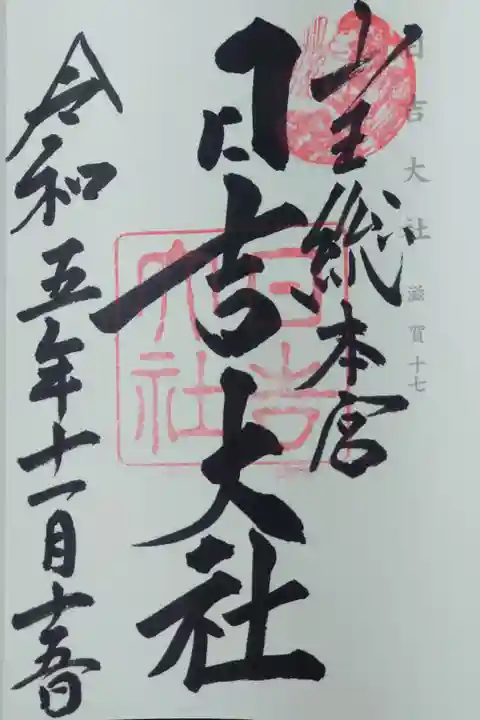 日吉大社 滋賀十七
山王総本宮
日吉大社
日吉大社
令和五年十一月十五日